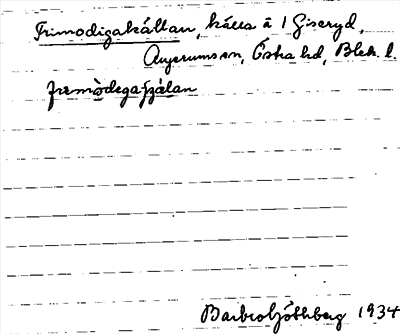 Frimodigakällan, källa å 1 Giseryd,
Augerums sn, Östra hd, Blek. l.
frimòdegaȷ̌älan
Barbro Göthberg 1934